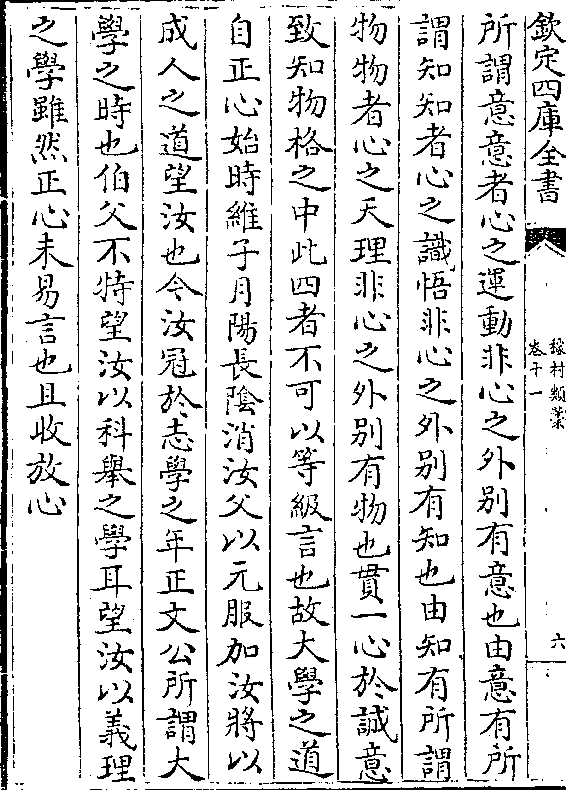 欽定四庫全書
稼村類藁
卷十一
六
所謂意意者心之運動非心之外别有意也由意有所
謂知知者心之識悟非心之外别有知也由知有所謂
物物者心之天理非心之外别有物也貫一心於誠意
致知物格之中此四者不可以等級言也故大學之道
自正心始時維子月陽長陰消汝父以元服加汝將以
成人之道望汝也今汝冠於志學之年正文公所謂大
學之時也伯父不特望汝以科舉之學耳望汝以義理
之學雖然正心未易言也且收放心